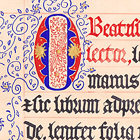 O Beatiss
lector, l
manus
xlic librum adpre
de, leniter folia